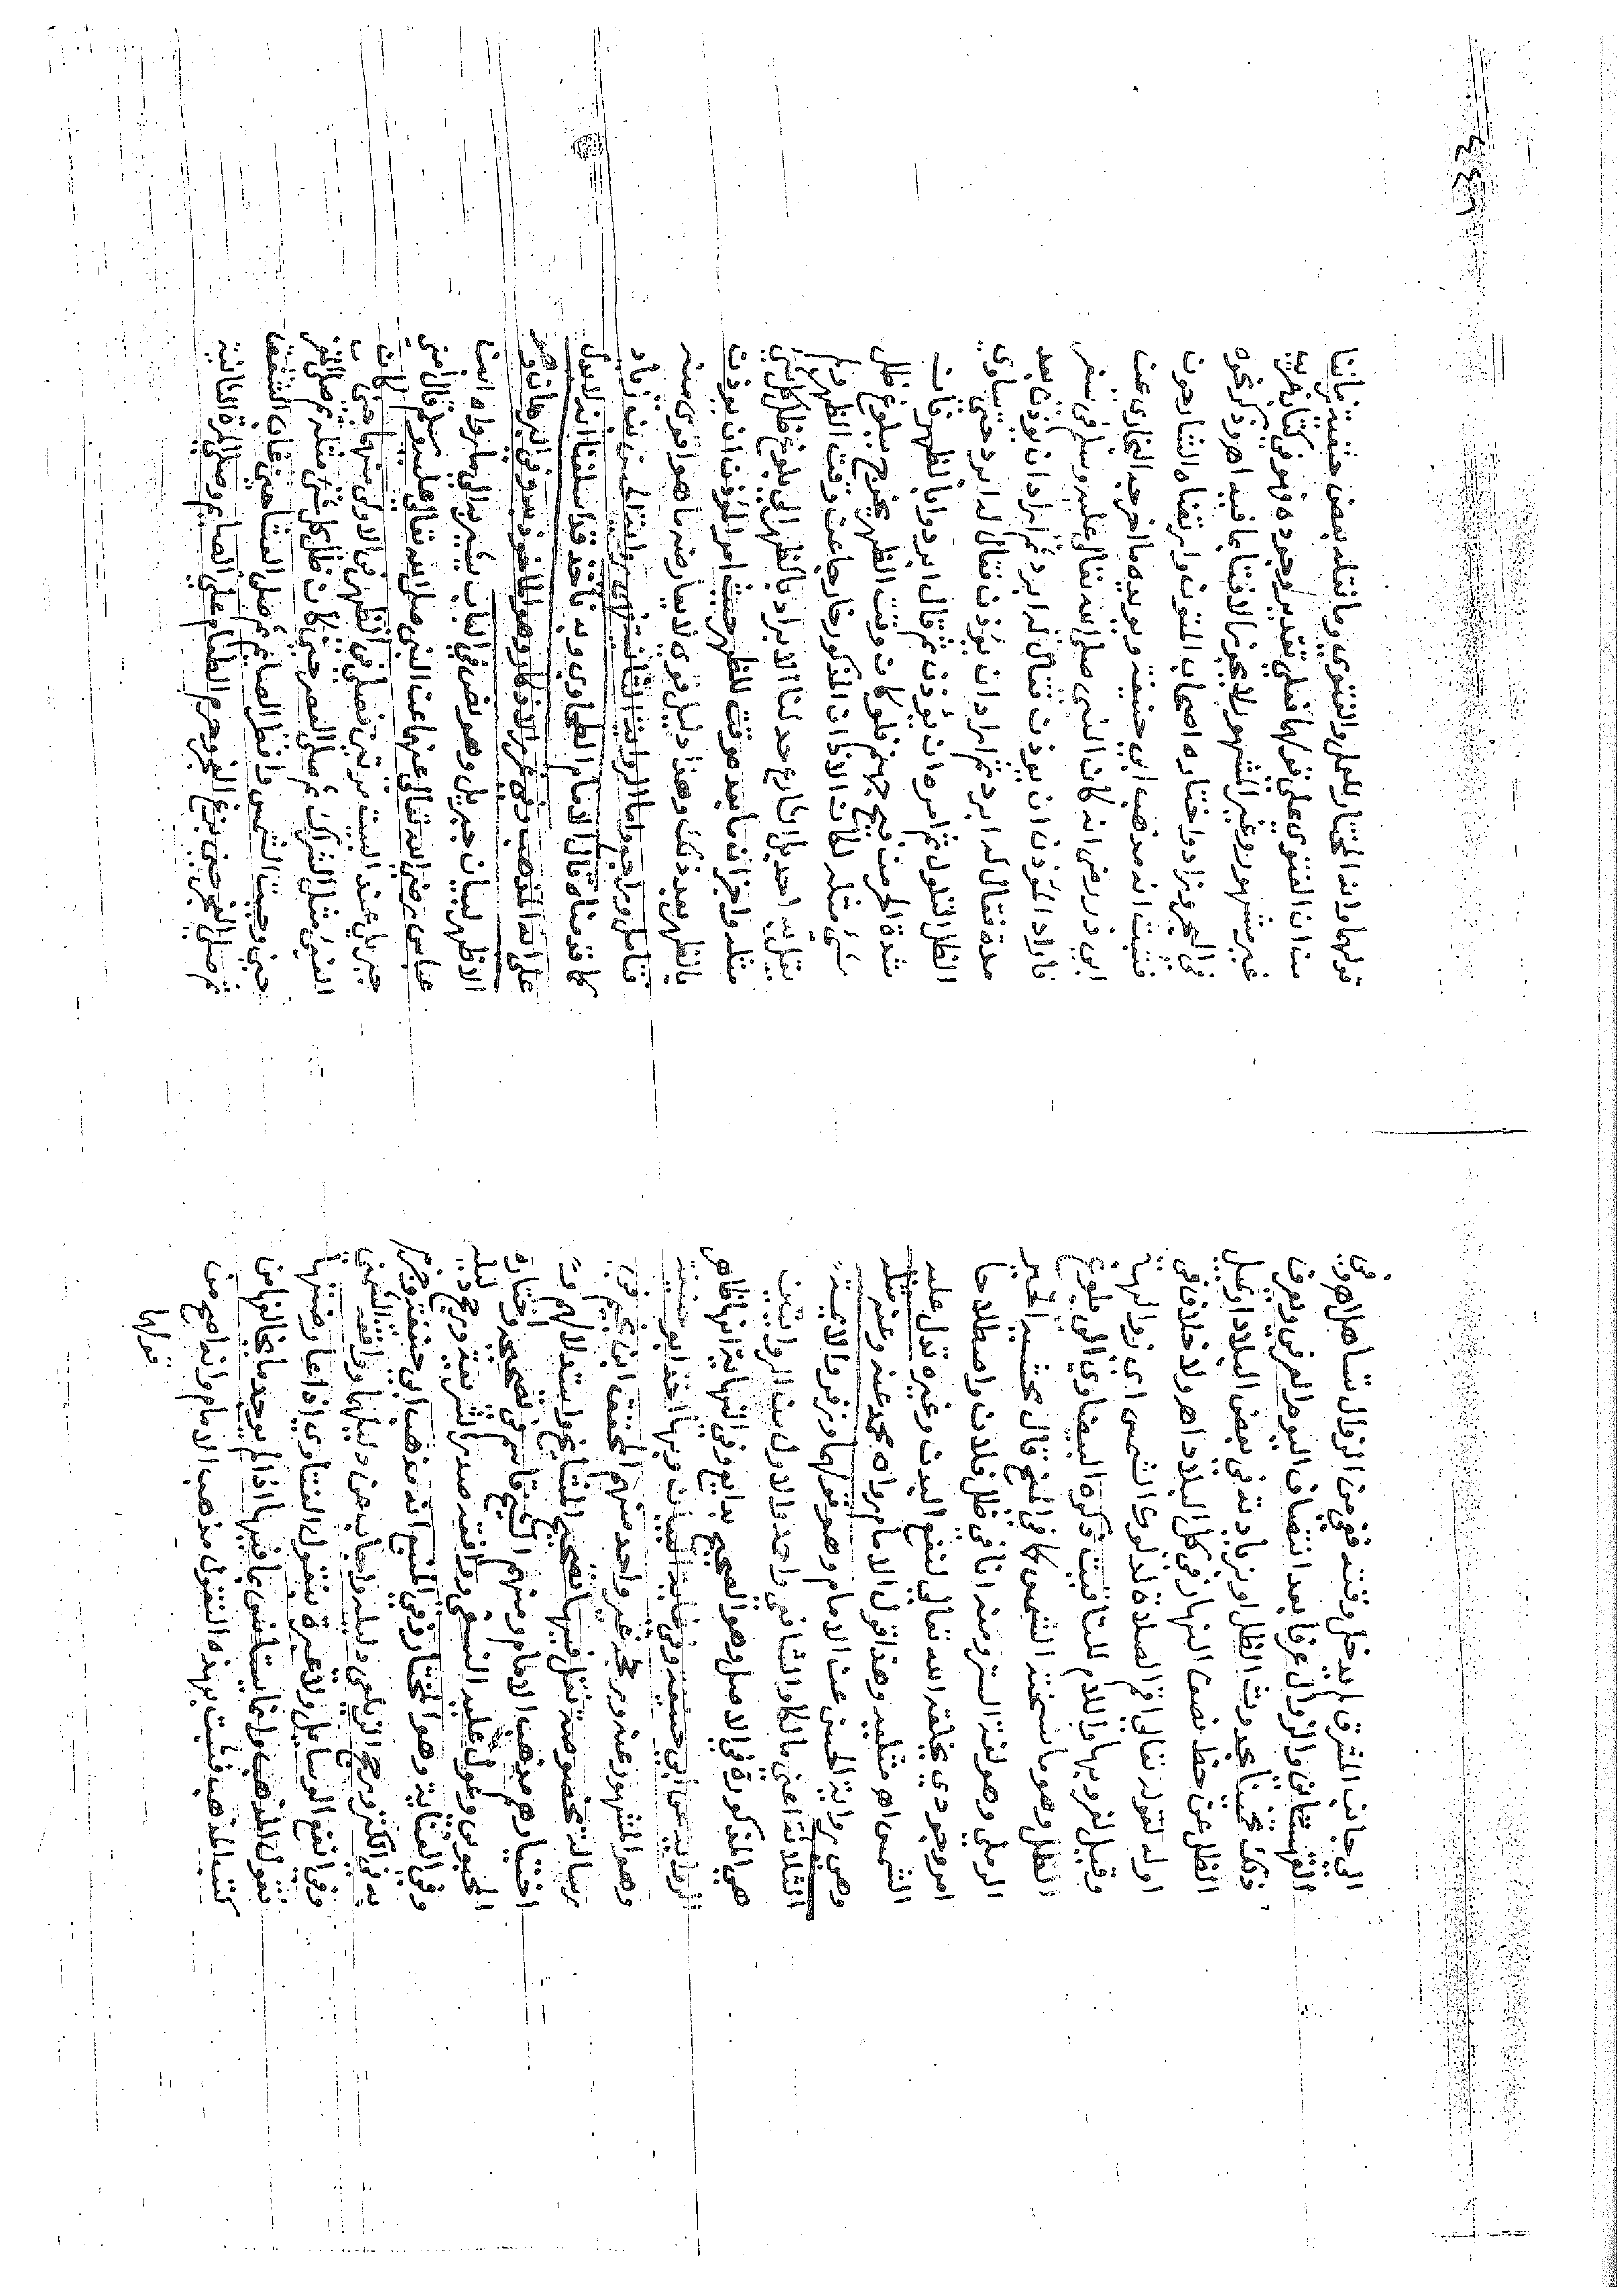 الى جانب المشرق لم يدخل وقته ففي من الزوال تساهل اهر وفي
القهستاني والزوال عرفا بعد انتصاف اليوم العرفي ويعرف
ذلك تخمينا بحدوث الظل او زيادته في بعض البلاد او بميل
الظل عن خط نصف النهار في كل البلاد اهر ولا خلاف في
اوله لقوله تعالى اقم الصلاة لدلوك الشمس اى زوالها
وقيل لغروبها واللام للتاقيت ذكره البيضاوي الى بلوغ
الظل وهو ما نسخته الشمس كما في المنح قال محشيه الخير
الرملي وهو لغة الستر ومنه انا في ظل فلان واصطلاحا
امر وجودي يخلقه الله تعالى لنفع البدن وغيره تدل عليه
الشمس اهر مثليه وهذا قول الامام رواه محمد عنه وعنه مثله
وهي رواية الحسن عن الامام وهو قولهما وزفر والايمة
الثلاثة اعني مالكا والشافعي واحمد والاول من الروايتين
هي المذكورة في الاصل وهو الصحيح بدايع وفي النهاية انها ظاهر
الرواية عن ابي حنيفة وفي غاية البيان وبها اخذ ابو حنيفة
وهو المشهور عنه ورجحه غير واحد منهم المحقق ابن نجيم في
رسالة مخصوصة نقل فيها تصحيح المشايخ واستدلالهم و
اختيارهم مذهب الامام ومنهم الشيخ قاسم في تصحيحه واختاره
المحبوبي وعول عليه النسفي ووافقه صدر الشريعة ورجح دليله
وفي الغياثية وهو المختار وفي المنبع انه مذهب ابي حنيفة وجزم
به في الكنز ورجح الزيلعي دليله واجاب عن دليلهما وافقه الشمني
وفي انفع الوسايل ولا عبرة بنقول الفتاوي اذا عارضتها
نقول المذهب وانما يستانس بما فيها اذا لم يوجد ما يخالفها من
كتب المذهب فثبت بهذه النقول مذهب الامام وانه اصح من
قولهما
٣٣
قولهما وانه المختار للعمل والفتوى وما نقله بعض حنفية زماننا
من ان الفتوى على قولهما فعلى تقدير وجوده فهو في كتاب غريب
غير مشهور وغير المشهور لا يجوز الافتاء بما فيه اهر وذكر نحوه
في البحر وزاد واختاره اصحاب المتون وارتضاه الشارحون
فثبت انه مذهب ابي حنيفة ويويده ما اخرجه البخاري عن
ابي ذر رضي انه كان النبي صلى الله تعالى عليه وسلم في سفر
فاراد المؤذن ان يوذن فقال له ابرد ثم اراد ان يوذن بعد
مدة فقال له ابرد ثم اراد ان يوذن فقال له ابرد حتى يساوى
الظل التلول ثم امره ان يؤذن ثم قال ابردوا بالظهر فان
شدة الحر من فيح جهنم فلو كان وقت الظهر يخرج ببلوغ ظل
شئ مثله لكان الاذان المذكور خارجا عن وقت الظهر ولم
يقل به احد بل الشارع حد لنا الابراد بالظهر الى بلوغ ظل كل شئ
مثله واخبر ان ما بعده وقت للظهر حيث امر المؤذن ان يوذن
بالظهر بعد ذلك وهذا دليل قوى لا يعارضه ما هو اقوى منه
فتامل وراجع واما الرواية الثانية فهي رواية الحسن بن زياد
كما قدمناه قال الامام الطحاوي وبه ناخذ قد اسلفنا انه لا يدل
على انه المذهب وفي غرر الاذكار وهو الماخوذ به وفي البرهان وهو
الاظهر لبيان جبريل وهو نص في الباب يشير به الى ما رواه ابن
عباس رضي الله تعالى عنهما عن النبي صلى الله تعالى عليه وسلم قال امني
جبريل عند البيت مرتين فصلى في الظهر في الاولى منهما حين كان
الفئ مثل الشراك ثم صلى العصر حين كان ظل كل شئ مثله ثم صلى المغرب
حين وجبت الشمس وافطر الصايم ثم صلى العشا حين غاب الشفق
ثم صلى الفجر حين بزغ الفجر وحرم الطعام على الصايم وصلى المرة الثانية